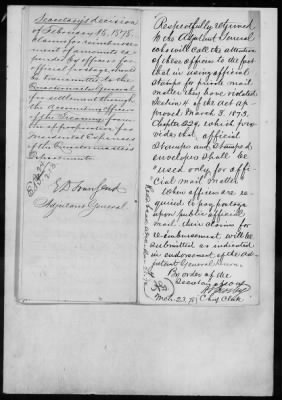 Secretary's decision
of February 16, 1878.
claims for reimburse-
ment of amounts ex-
pended by officers for
official postage should
be transmitted to the
Quartermaster General
for settlement through
the Accounting Officers
of the Treasury from
the appropriation for
Incidental Expenses
of the Quartermaster's
Department.
E D Townsend
Adjutant General
Respectfully returned
to the Adjutant General
who will call the attention
of these officers to the fact
that in using official
stamps for private mail
matter they have violated
Section 4 of the act ap-
proved March 3, 1873.
Chapter 229, which pro-
vides that official
stamps and stamped
envelopes shall be
"used only for offi-
cial mail matter."
When officers are re-
quired to pay postage
upon public official
mail, their claims for
reimbursement will be
submitted as indicated
in endorsement of the Ad-
jutant General hereon.
By order of the
Secretary of War
Mch. 23, 78 Chief Clerk